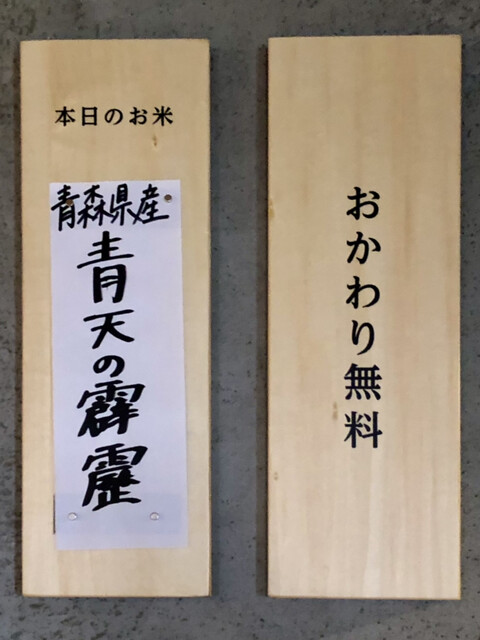 本日のお米
青森県産
青天の霹靂
おかわり無料